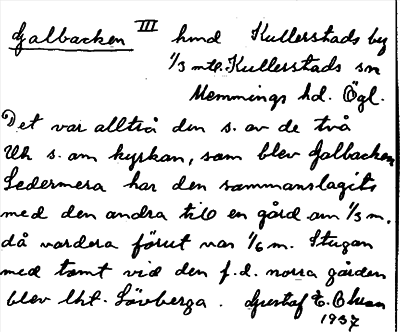 Galbacken III hmd Kullerstads by
1/3 mtl. Kullerstads sn
Memmings hd. Ögl.
Det var alltså den s. av de två
Uh s. om kyrkan, som blev Galbacken
Sedermera har den sammanslagits
med den andra till en gård om 1/3 m.
då vardera förut var 1/6 m. Stugan
med tomt vid den f.d. norra gården
blev lht. Lövberga. Gustaf E. Ohson
1937